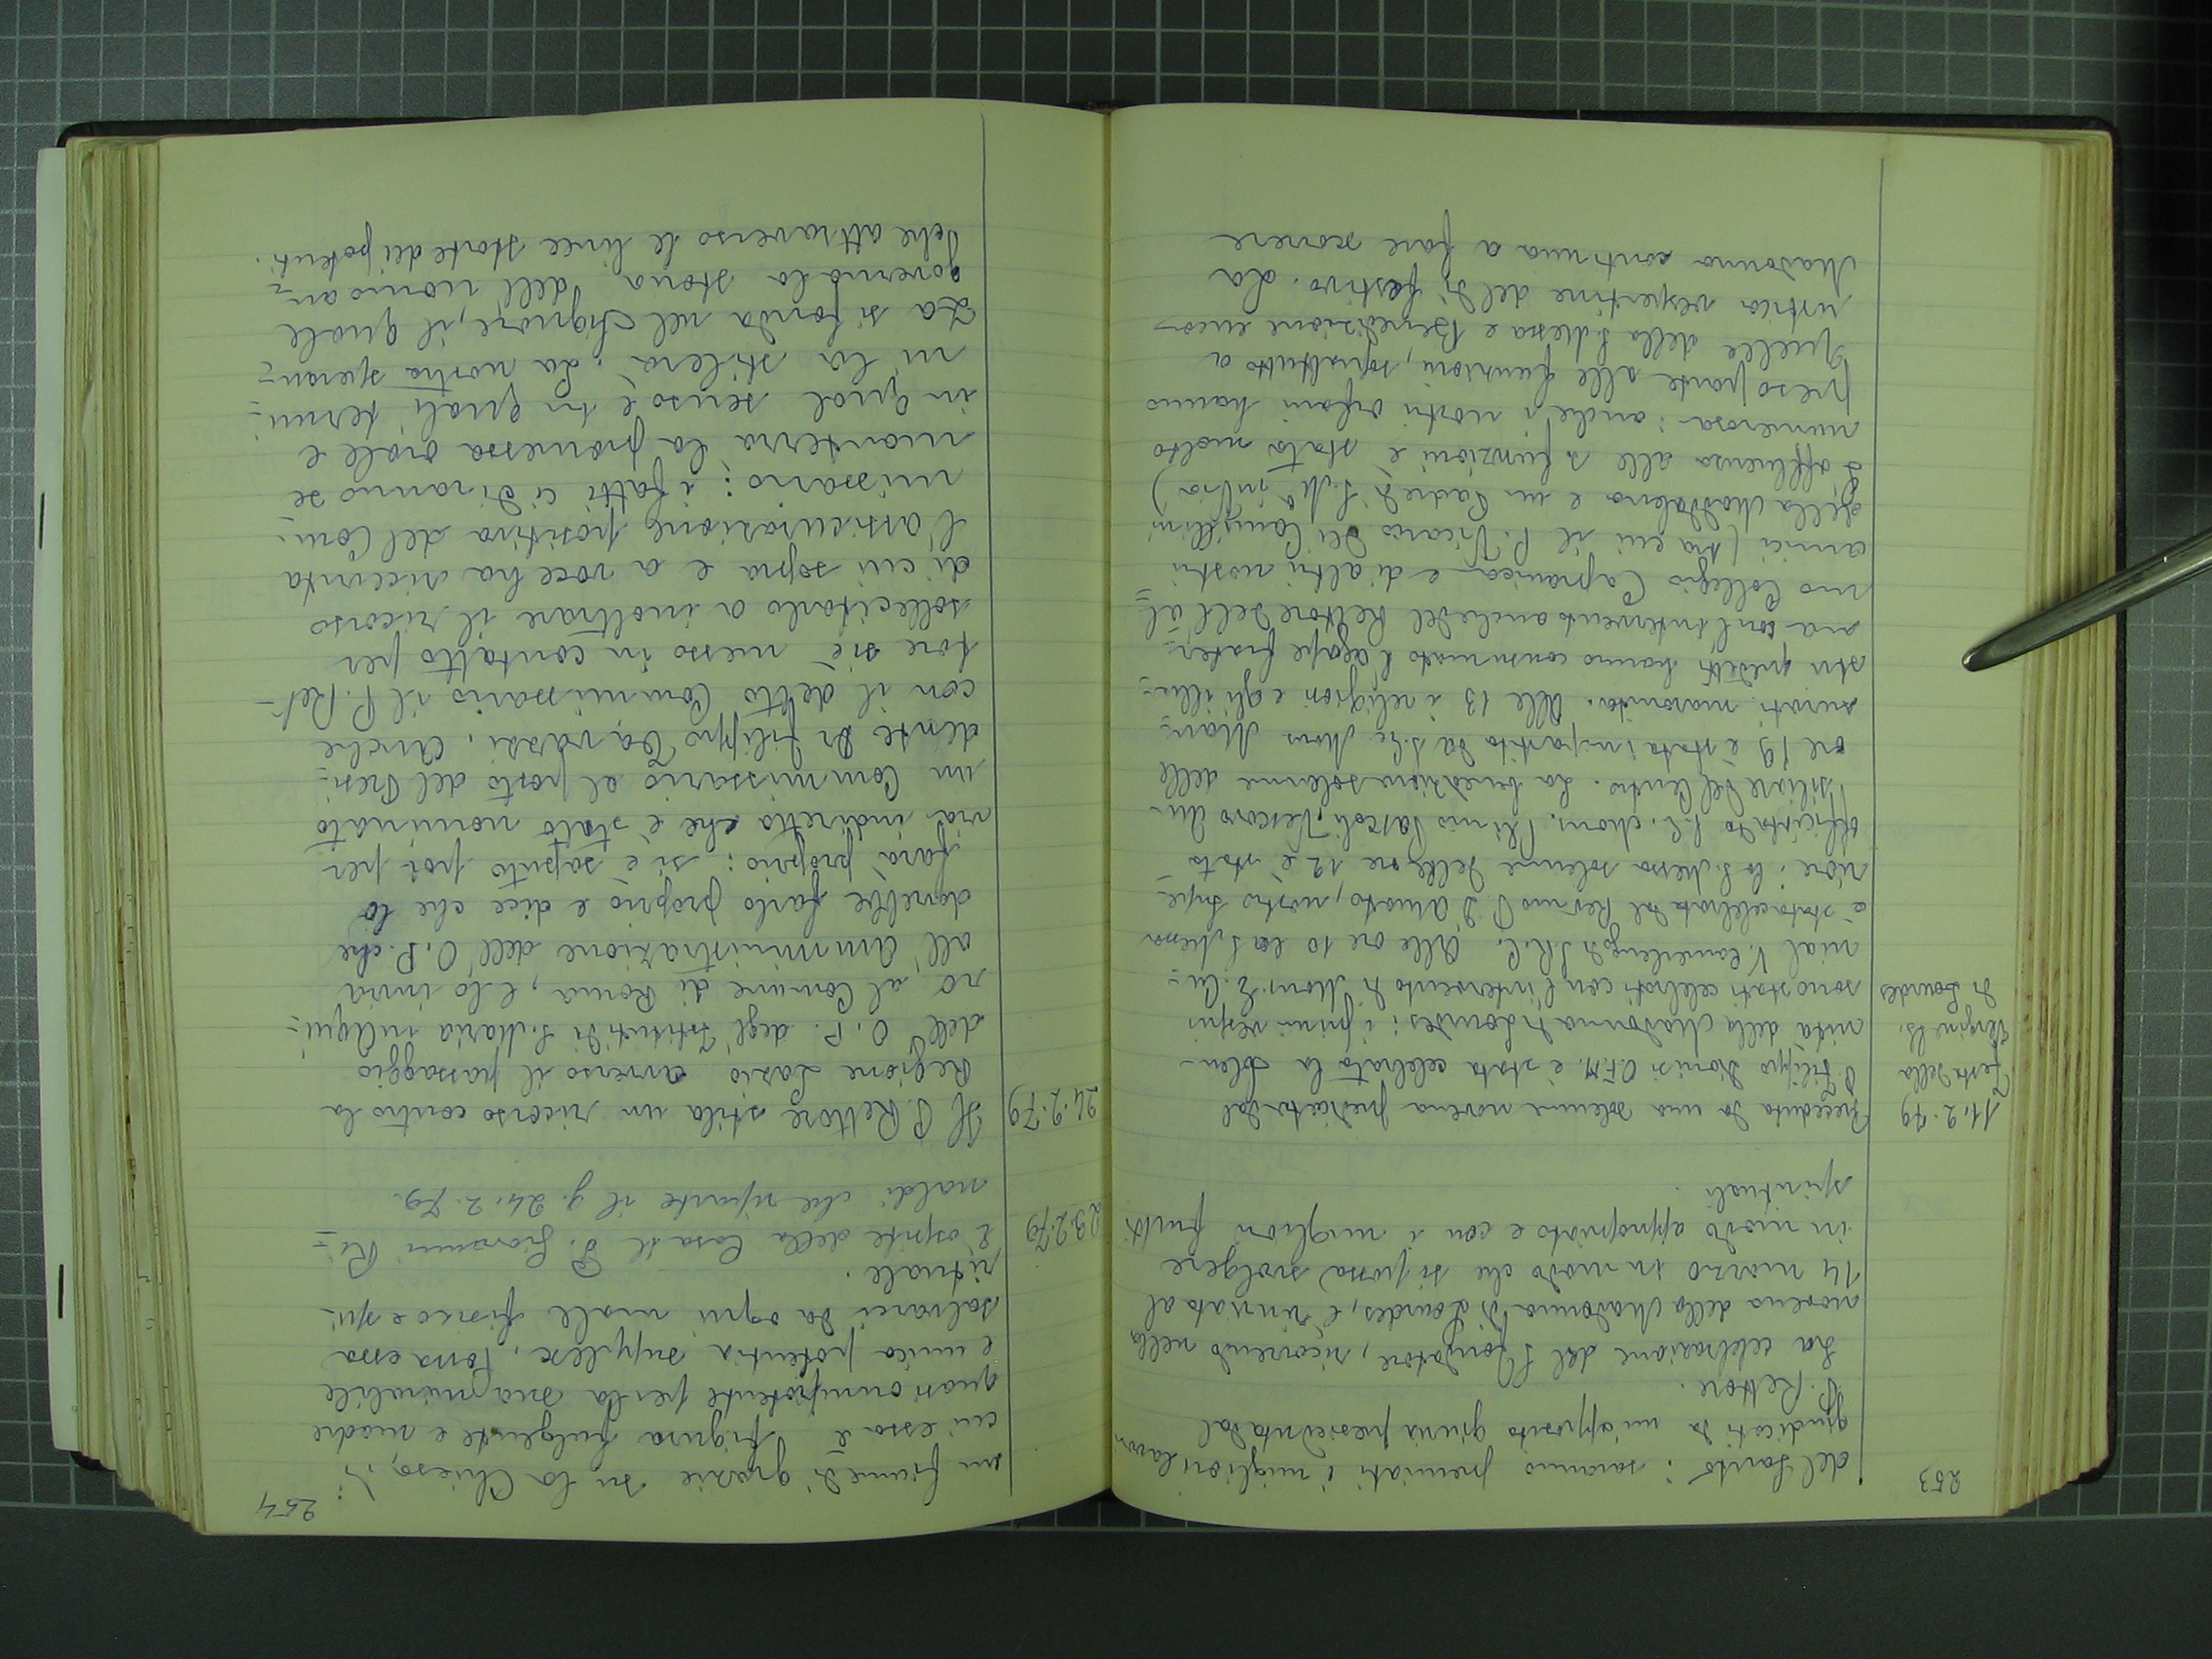 253
del Santo: saranno premiati i migliori lavori
giudicati da un'apposita giuria presieduta dal
P. Rettore.
La celebrazione del S. Fondatore, ricorrendo nella
novena della Madonna di Lourdes, è rinviata al
14 marzo in modo che si possa svolgere
in modo appropriato e con i migliori frutti
spirituali.
11.2.79
Festa della
Vergine Ss.
di Lourdes
Preceduta da una solenne novena predicata dal
P. Filippo O.F.M. è stata celebrata la solen-
nità della Madonna di Lourdes: i primi vespri
sono stati celebrati con l'intervento di Mons. E. Cu-
nial V. Camerlengo di S.R.C. Alle ore 10 la S. Messa
è stata celebrata dal Rev.mo P. D'Amato, nostro supe-
riore: la S. Messa solenne delle ore 12 è stata
officiata da S.E. Mons. Plinio Pascoli, Vescovo Au-
siliare del Centro. La benedizione solenne delle
ore 19 è stata impartita da S. Ec. Mons. Man-
surati maronita. Alle 13 i religiosi e gli illu-
stri predetti hanno consumato l'agape frater-
na con l'intervento anche del Rettore dell'Al-
mo Collegio Capranica e di altri nostri
amici (tra cui il P. Vicario dei Camillini
della Maddalena e un Padre di S. M. in
L'affluenza alle s. funzioni è stata molto
numerosa: anche i nostri orfani hanno
preso parte alle funzioni, soprattutto a
quelle della S. Messa e Benedizione euca-
ristica vespertine del dì festivo. La
Madonna continua a fare scorrere
254
un fiume di grazie su la Chiesa, di
cui essa è figura fulgente e madre
quasi onnipotente per la sua mirabile
e unica potentia supplex. Possa essa
salvarci da ogni male fisico e spi-
rituale.
23.2.79
È ospite della Casa il P. Giovanni Ri-
naldi che riparte il g. 24.2.79.
24.2.79
Il P. Rettore stila un ricorso contro la
Regione Lazio avverso il passaggio
dell'O.P. degl'Istituti di S. Maria in Aqui-
ro al Comune di Roma, e lo invia
all'Amministrazione dell'O.P. che
dovrebbe farlo proprio e dice che lo
farà proprio: si è saputo poi per
via indiretta che è stato nominato
un Commissario al posto del Presi-
dente Dr Filippo. Anche
con il detto Commissario il P. Ret-
tore si è messo in contatto per
sollecitarlo a inoltrare il ricorso
di cui sopra e a voce ha ricevuta
l'assicurazione positiva del Com-
missario: i fatti ci diranno se
manterrà la promessa orale e
in qual senso e in quali termi-
ni la stilerà. La nostra speran-
za si fonda nel Signore, il quale
governa la storia dell'uomo an-
che attraverso le linee storte dei potenti.